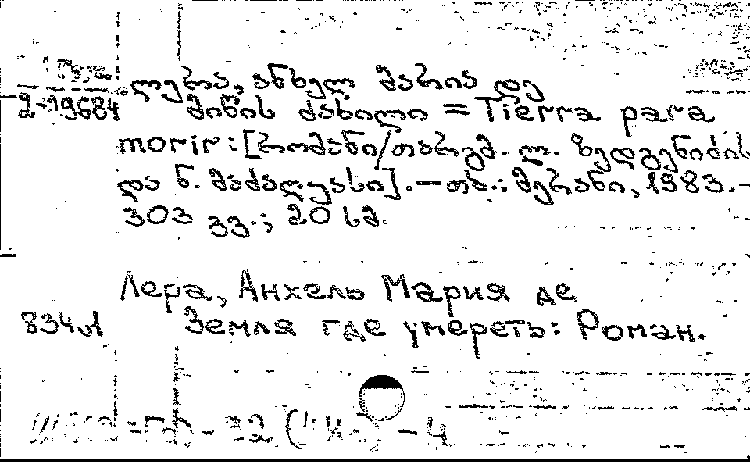 ლერა, ანხელ მარია დე
2-19684 მიწის ძახილი = Tierra para
morir: [რომანი/თარგმ. ლ. ზედგენიძის
და ნ. მაძაღუასი]. — თბ.: მერანი, 1983. —
303 გვ.; 20 სმ.
Лера, Анхель Мария де
834 Земля где умереть: Роман.